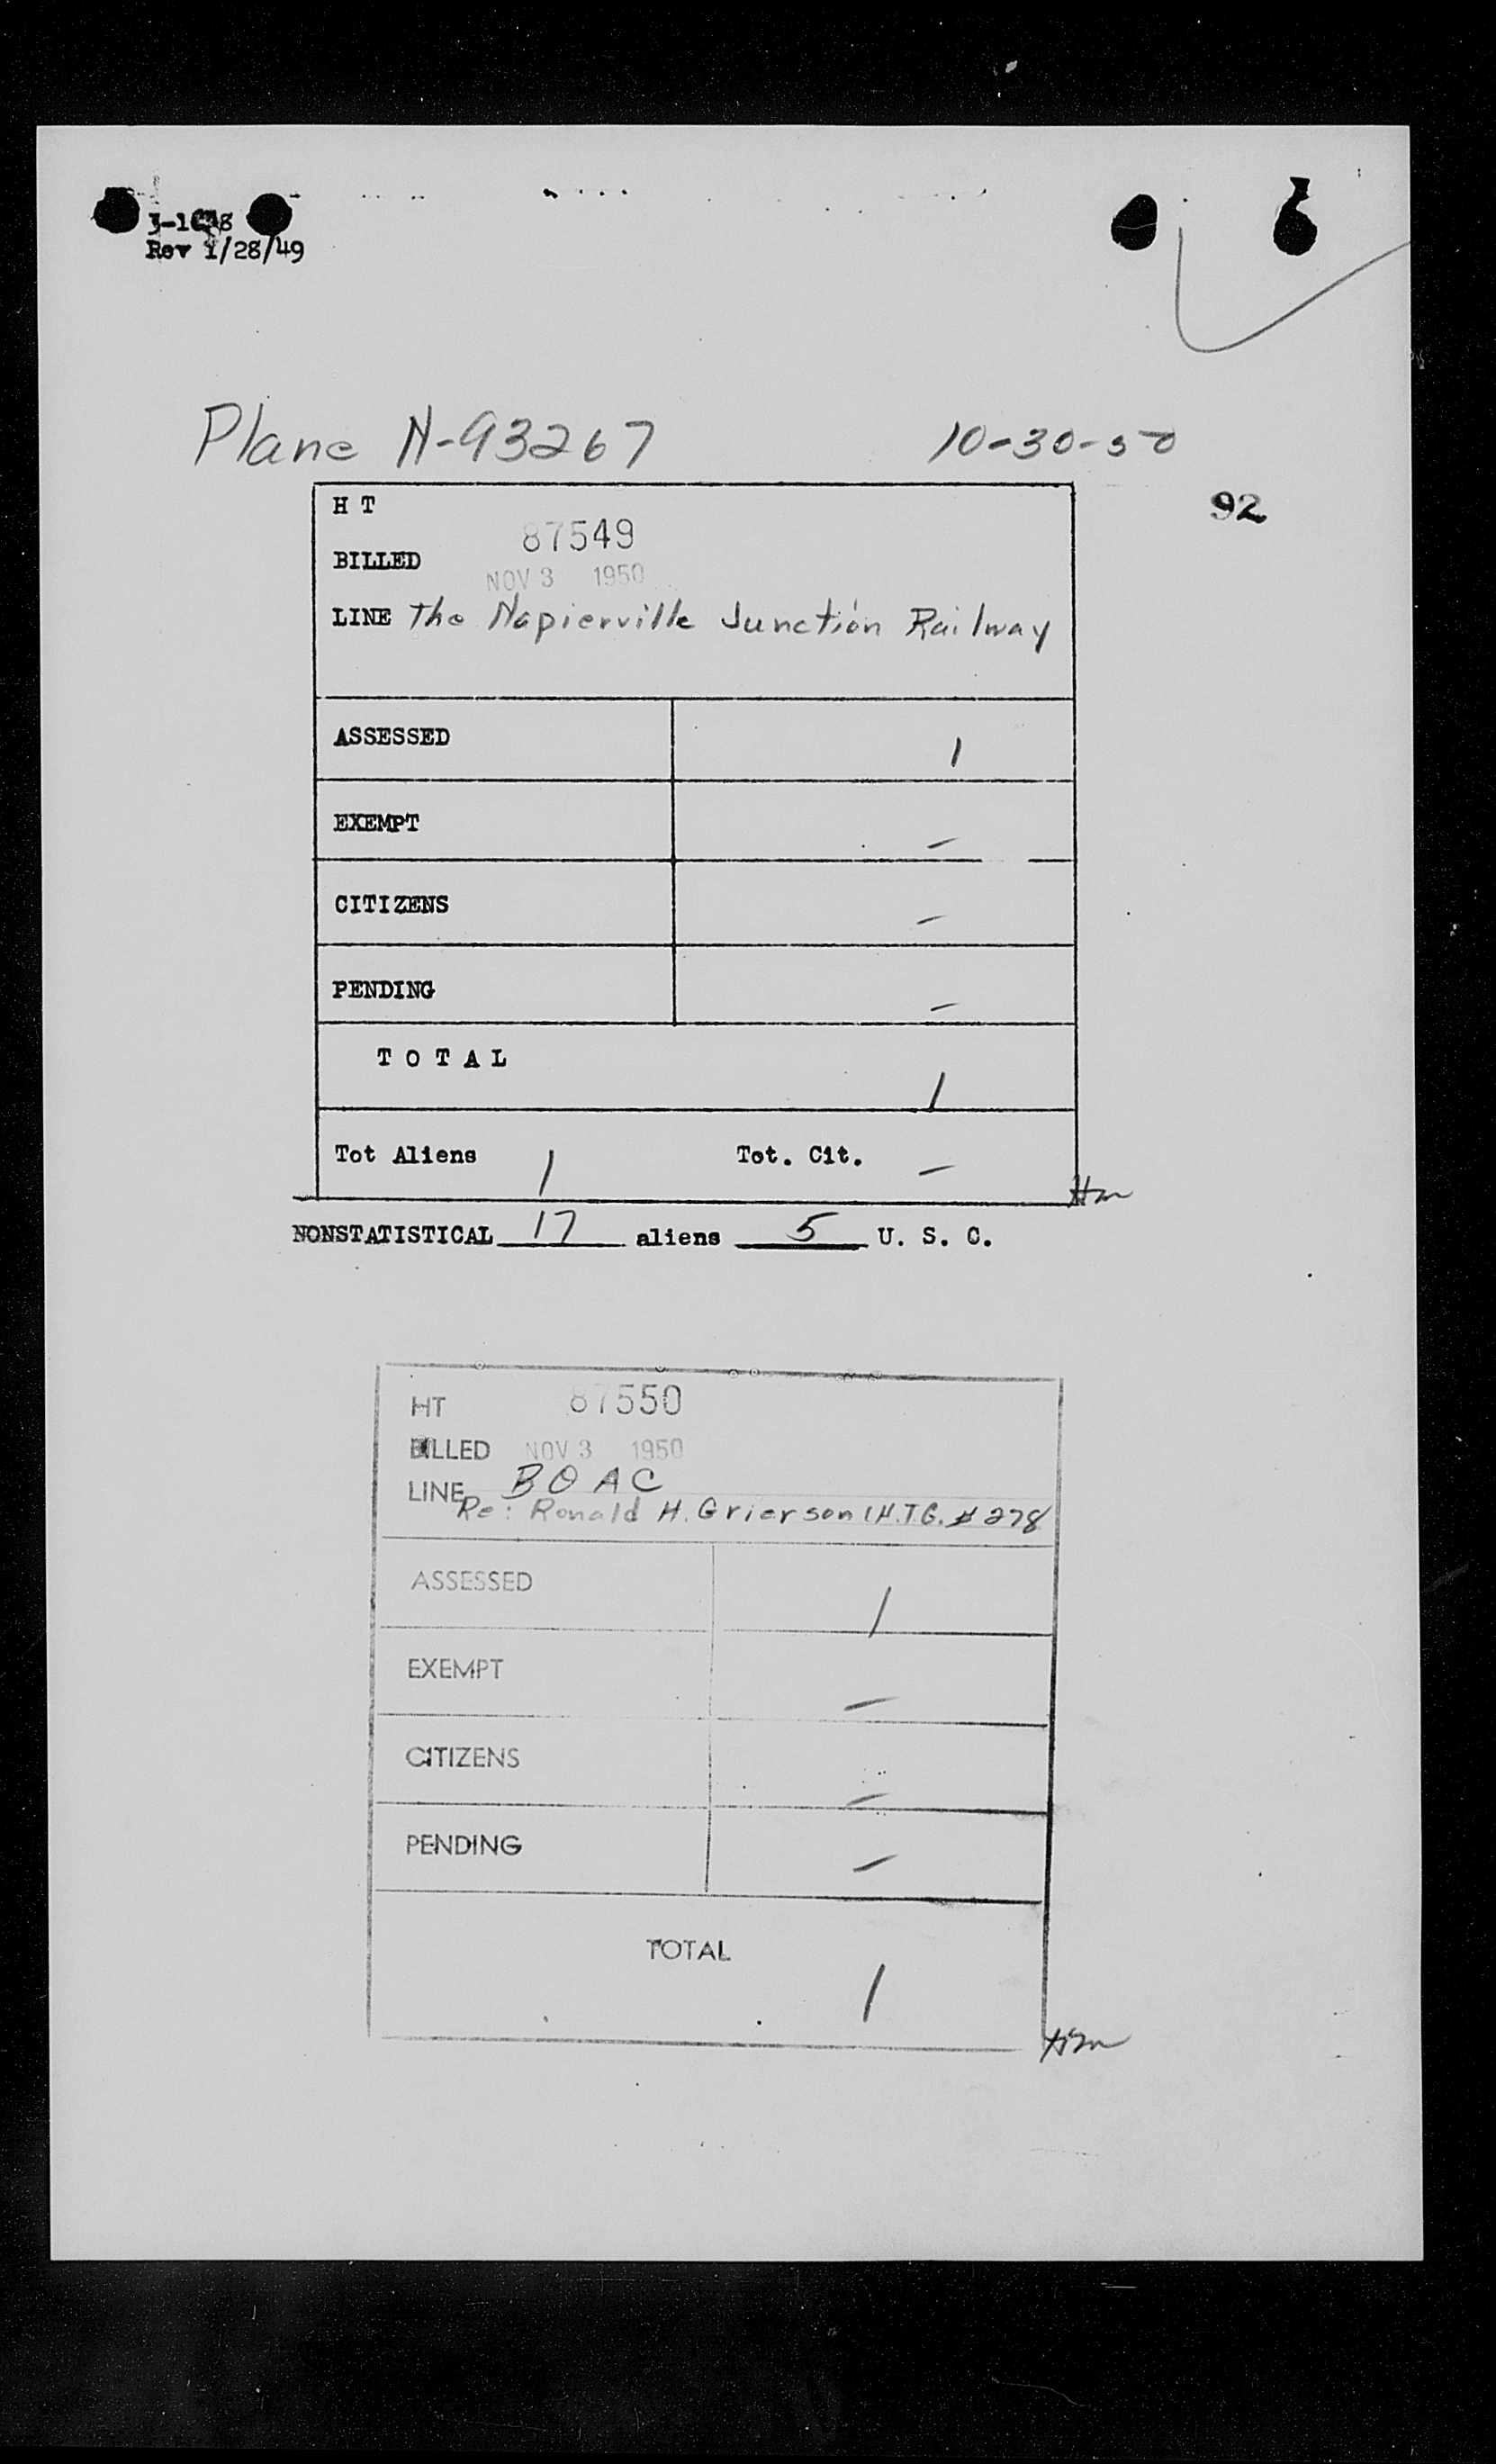 Rev 1/28/49
Plane N-93267 10-30-50
92
H T 87549
BILLED NOV 3 1950
LINE The Napierville Junction Railway
ASSESSED 1
EXEMPT -
CITIZENS -
PENDING -
T O T A L 1
Tot Aliens 1 Tot. Cit. -
NONSTATISTICAL 17 aliens 5 U. S. C.
HT 87550
BILLED NOV 3 1950
LINE BOAC
Re: Ronald H. Grierson (H.T.G. # 278
ASSESSED 1
EXEMPT -
CITIZENS -
PENDING -
TOTAL
1